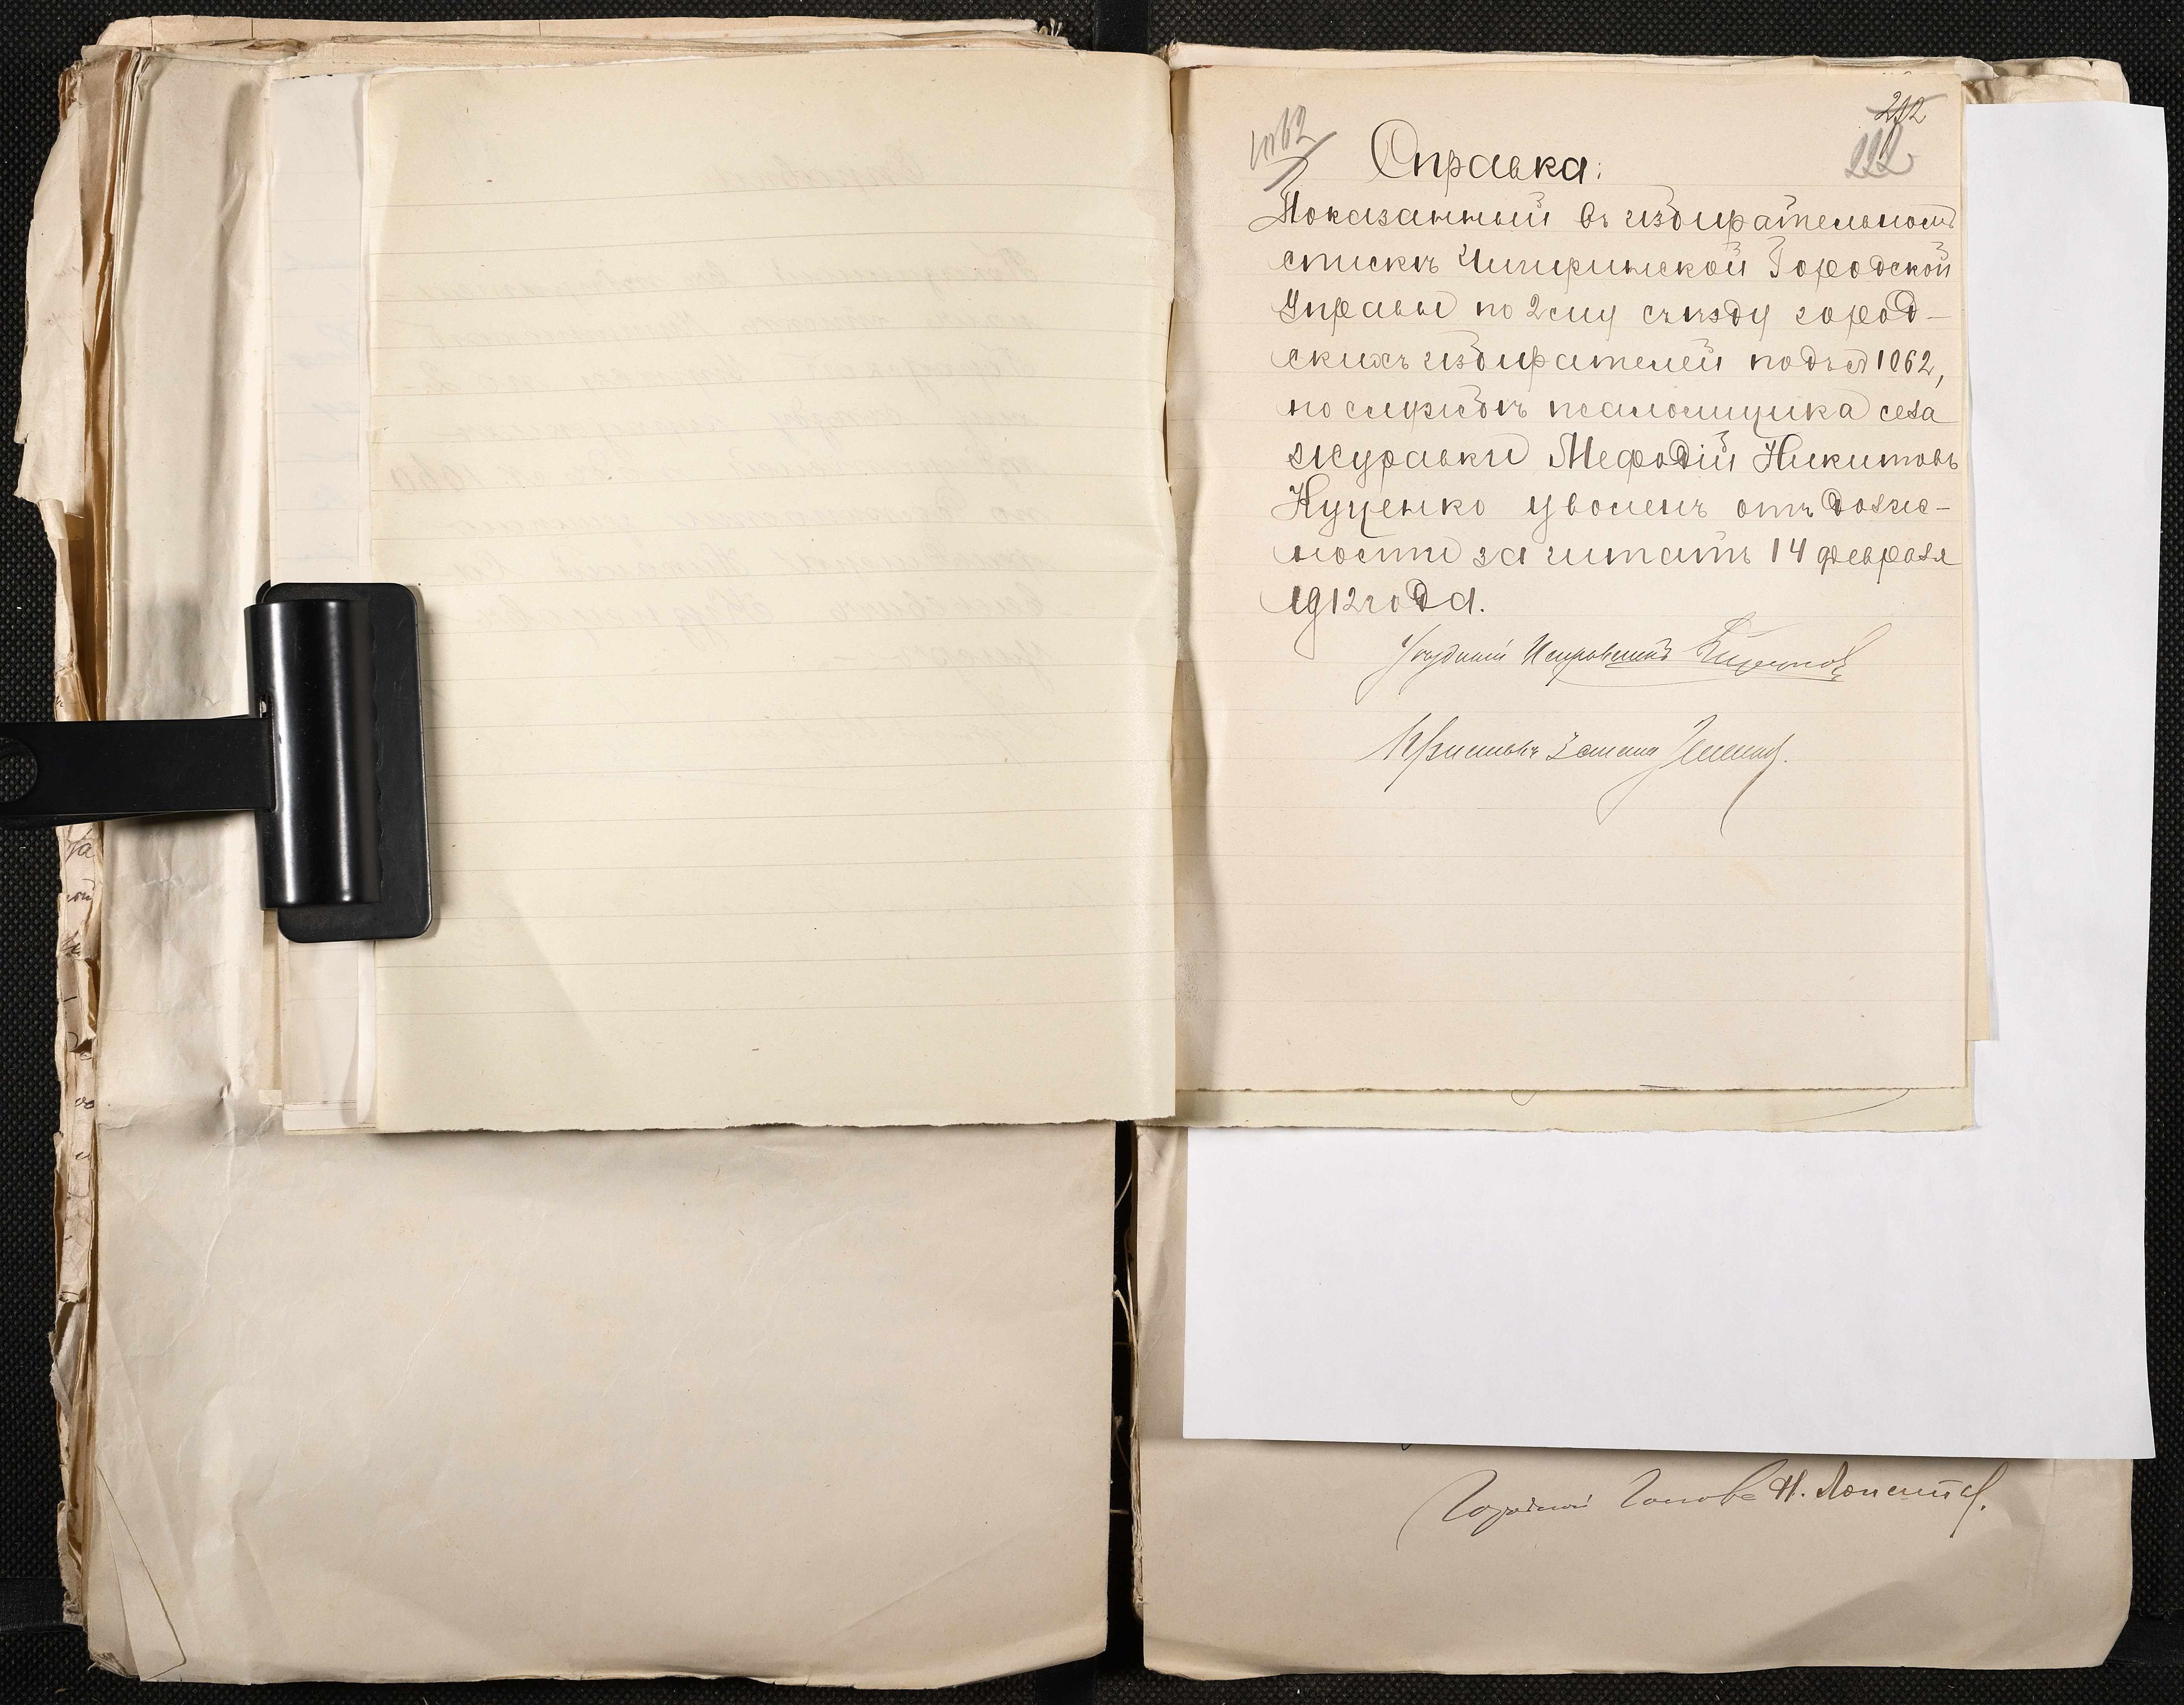 1062
212
222
Справка:
Показанный въ избирательномъ
спискѣ Чигиринской Городской
Управы по 2ому съѣзду город-
скихъ избирателей подъ № 1062,
по службѣ псаломщика села
Журавки Мефодій Никитовъ
Куценко уволенъ отъ долж-
ности за читать 14 февраля
1912 года.
Уѣздный Исправникъ
Приставъ 2 стана
Городской Голова Н.